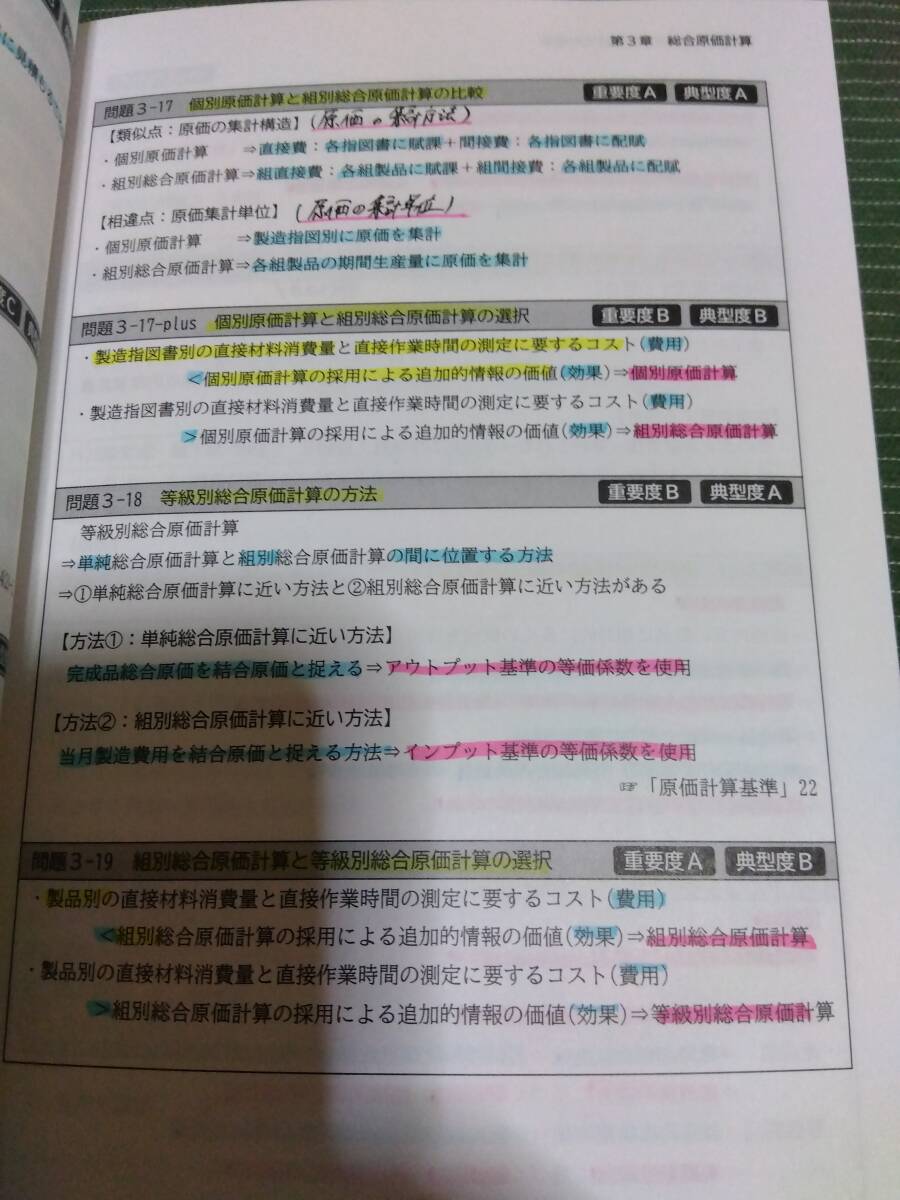 第3章 総合原価計算
に見積も
問題3-17 個別原価計算と組別総合原価計算の比較 重要度A 典型度A
【類似点：原価の集計構造】(原価の集計方法)
・個別原価計算 ⇒直接費：各指図書に賦課＋間接費：各指図書に配賦
・組別総合原価計算⇒組直接費：各組製品に賦課＋組間接費：各組製品に配賦
【相違点：原価集計単位】(原価の集計単位)
・個別原価計算 ⇒製造指図別に原価を集計
・組別総合原価計算⇒各組製品の期間生産量に原価を集計
度C
問題3-17-plus 個別原価計算と組別総合原価計算の選択 重要度B 典型度B
・製造指図書別の直接材料消費量と直接作業時間の測定に要するコスト(費用)
＜個別原価計算の採用による追加的情報の価値(効果)⇒個別原価計算
・製造指図書別の直接材料消費量と直接作業時間の測定に要するコスト(費用)
＞個別原価計算の採用による追加的情報の価値(効果)⇒組別総合原価計算
問題3-18 等級別総合原価計算の方法 重要度B 典型度A
等級別総合原価計算
⇒単純総合原価計算と組別総合原価計算の間に位置する方法
⇒①単純総合原価計算に近い方法と②組別総合原価計算に近い方法がある
【方法①：単純総合原価計算に近い方法】
完成品総合原価を結合原価と捉える⇒アウトプット基準の等価係数を使用
【方法②：組別総合原価計算に近い方法】
当月製造費用を結合原価と捉える方法⇒インプット基準の等価係数を使用
☞「原価計算基準」22
問題3-19 組別総合原価計算と等級別総合原価計算の選択 重要度A 典型度B
・製品別の直接材料消費量と直接作業時間の測定に要するコスト(費用)
＜組別総合原価計算の採用による追加的情報の価値(効果)⇒組別総合原価計算
・製品別の直接材料消費量と直接作業時間の測定に要するコスト(費用)
＞組別総合原価計算の採用による追加的情報の価値(効果)⇒等級別総合原価計算